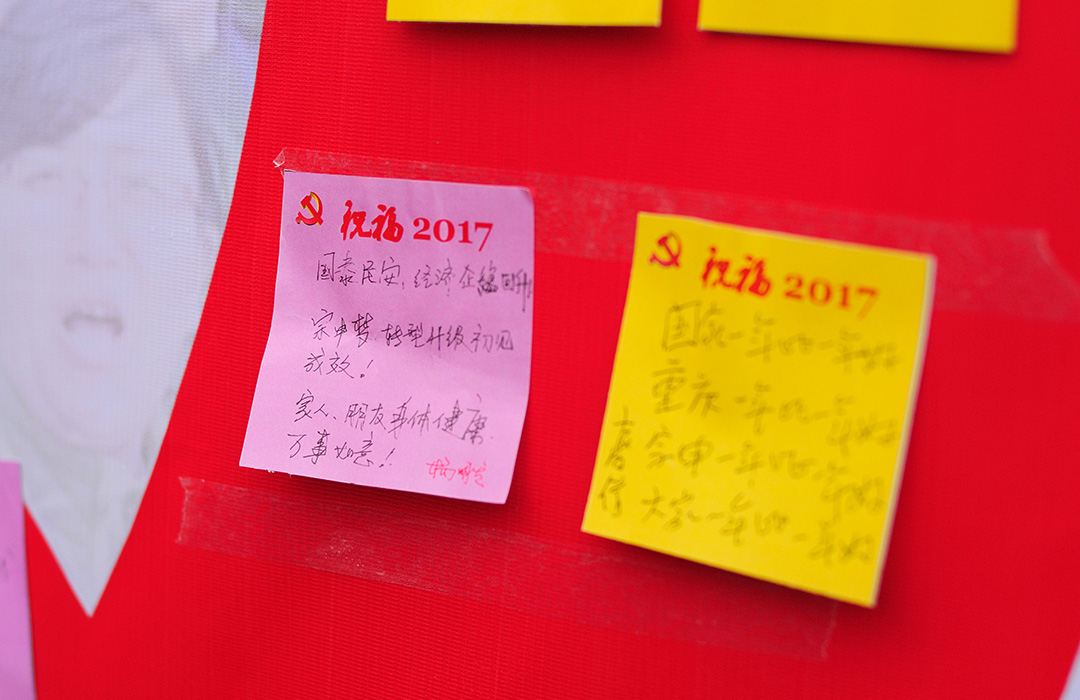 祝福 2017
国泰民安,经济企稳回升
宗申梦 转型升级初见
成效!
家人、朋友身体健康、
万事如意!
祝福 2017
国家一年比一年好
重庆一年比一年好
宗申一年比一年好
大家一年比一年好